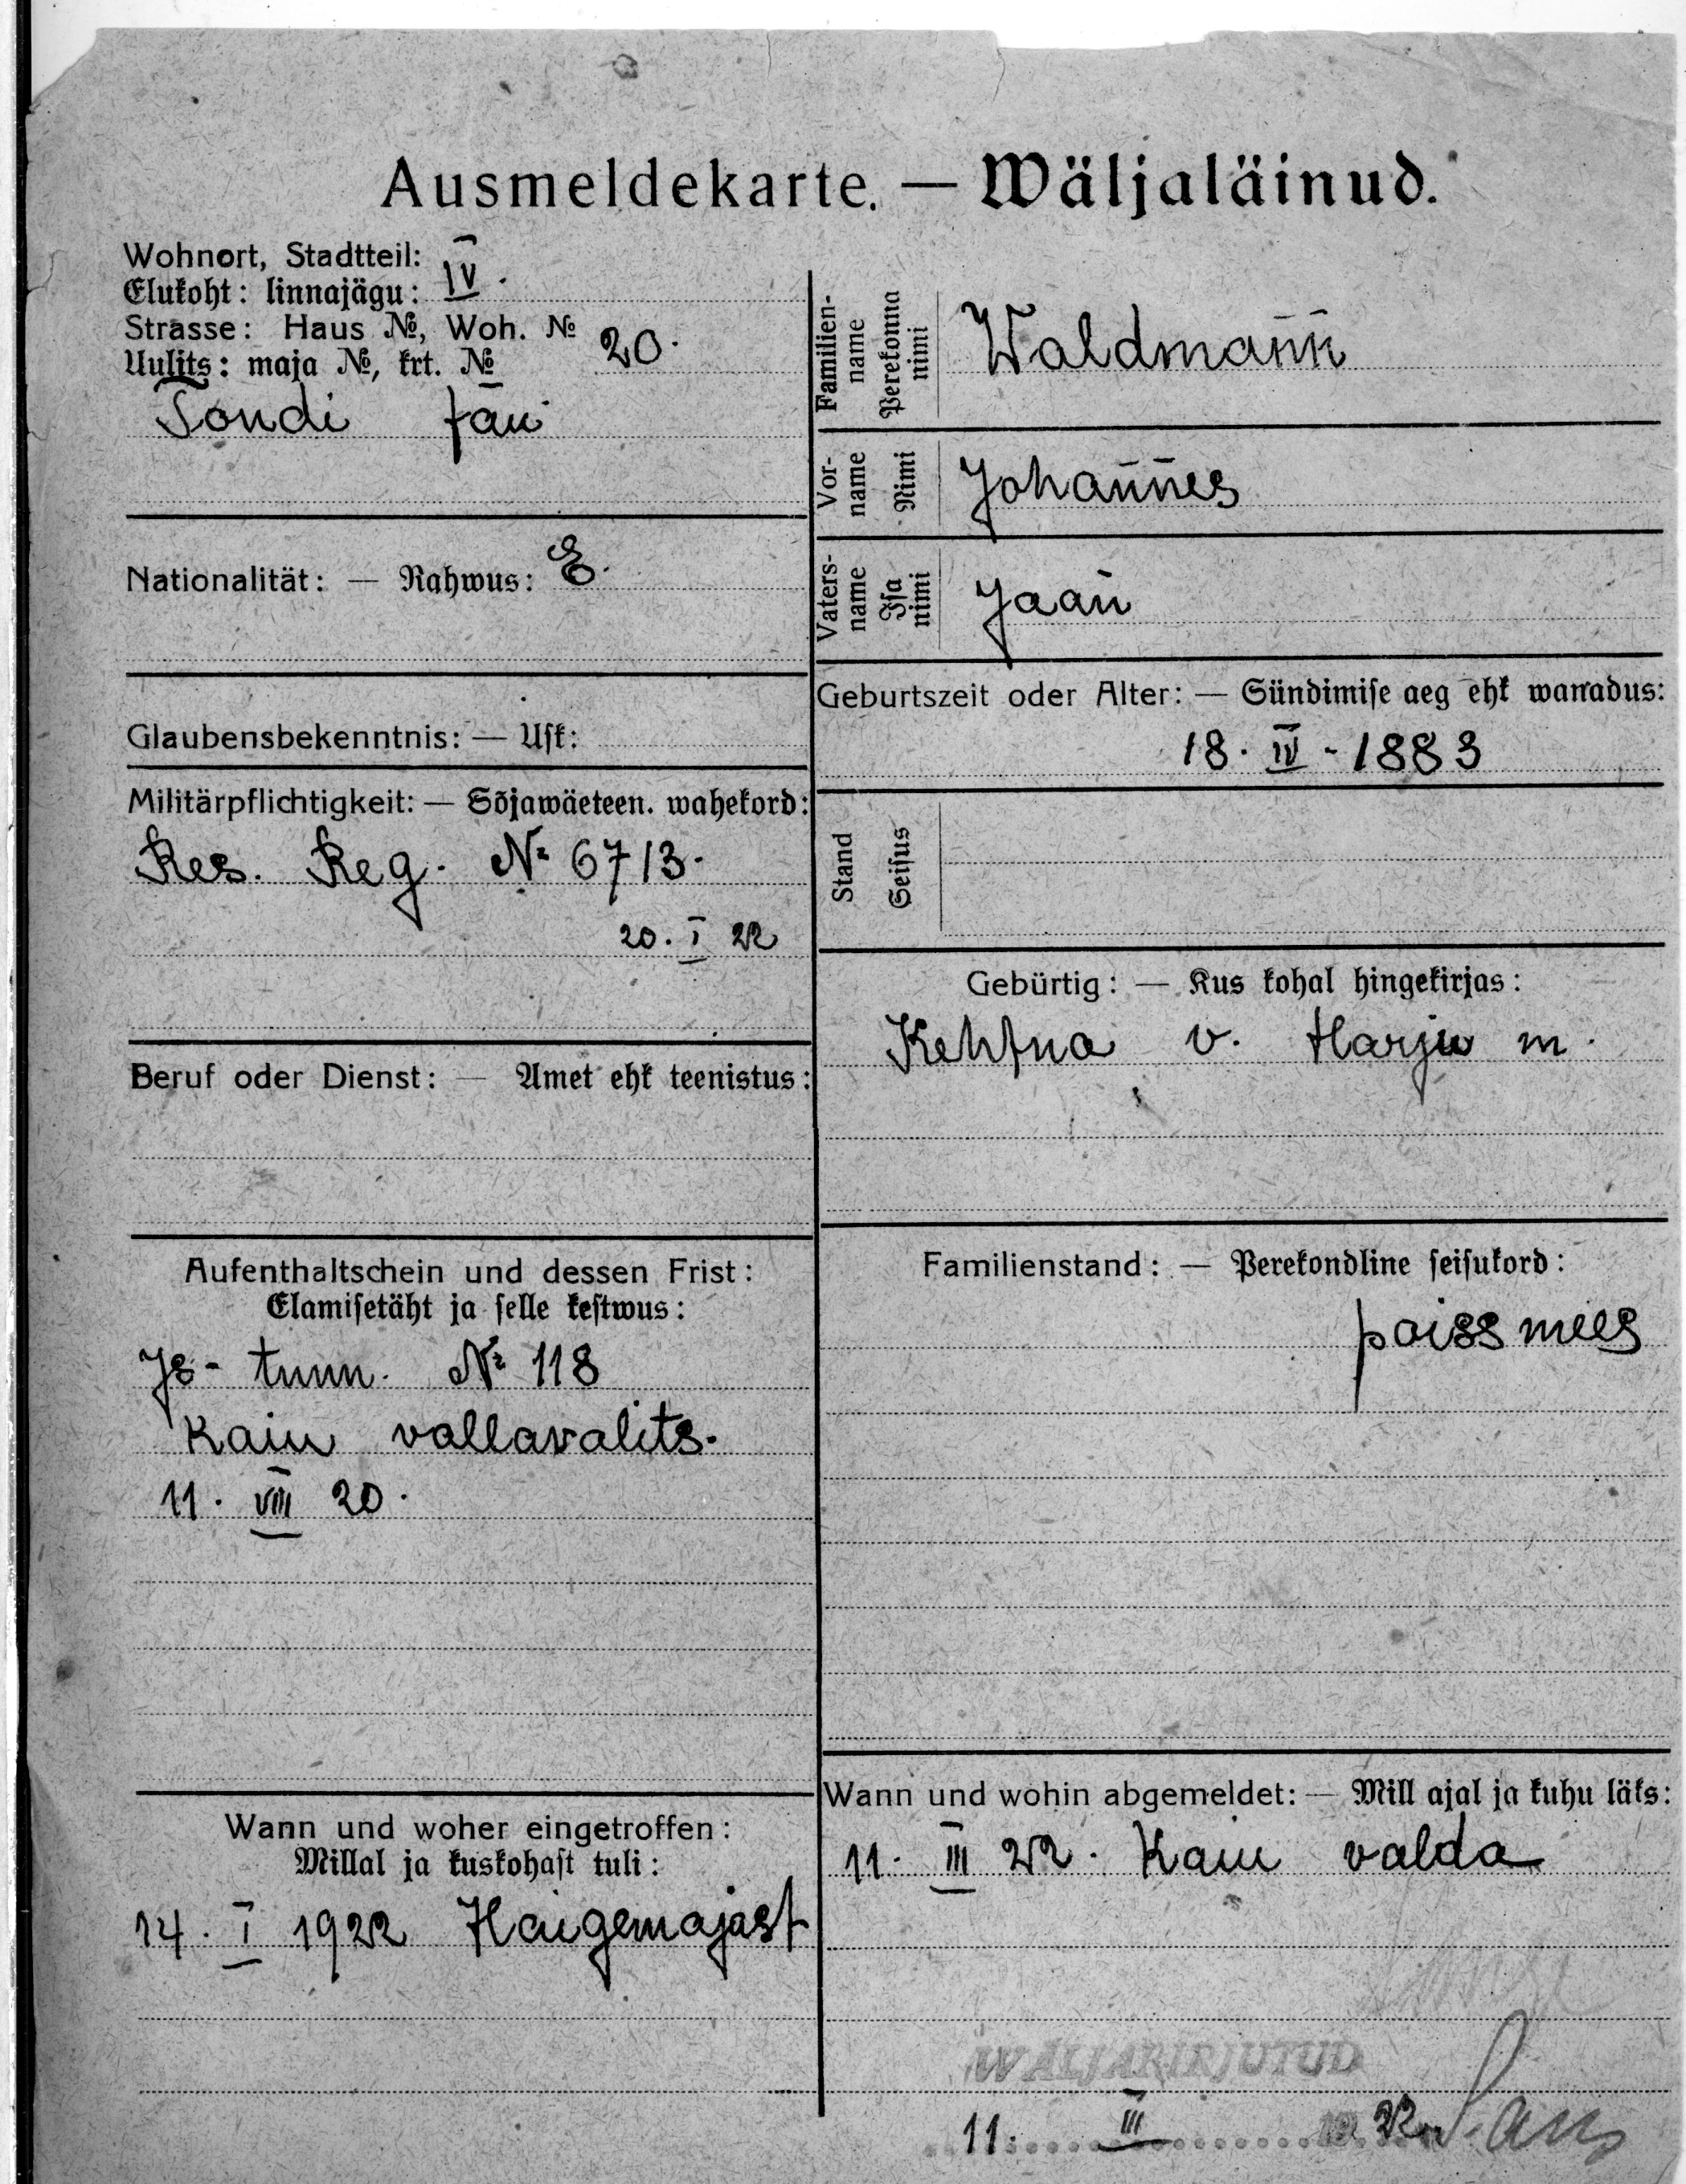 Ausmeldekarte. — Wäljaläinud.
Wohnort, Stadtteil:
Elukoht: linnajägu: IV.
Strasse: Haus №, Woh. №
Uulits: maja №, krt. № 20.
Tondi tän
Nationalität: — Rahwus: E.
Glaubensbekenntnis: — Usk:
Militärpflichtigkeit: — Sõjawäeteen. wahekord:
Res. Reg. № 6713.
20. I 22
Beruf oder Dienst: — Amet ehk teenistus:
Aufenthaltschein und dessen Frist:
Elamisetäht ja selle kestwus:
Is- tunn. № 118
Kaiu vallavalits.
11. VIII 20.
Wann und woher eingetroffen:
Millal ja kuskohast tuli:
14. I 1922 Haigemajast
Familien-
name
Perekonna
nimi
Waldmann
Vor-
name
Nimi
Johannes
Vaters-
name
Isa
nimi
Jaan
Geburtszeit oder Alter: — Sündimise aeg ehk wanadus:
18. IV - 1883
Stand
Seisus
Gebürtig: — Kus kohal hingekirjas:
Kehtna v. Harju m.
Familienstand: — Perekondline seisukord:
poissmees
Wann und wohin abgemeldet: — Mill ajal ja kuhu läks:
11. III 22. Kaiu valda
WÄLJAKIRJUTUD
11. III 1922